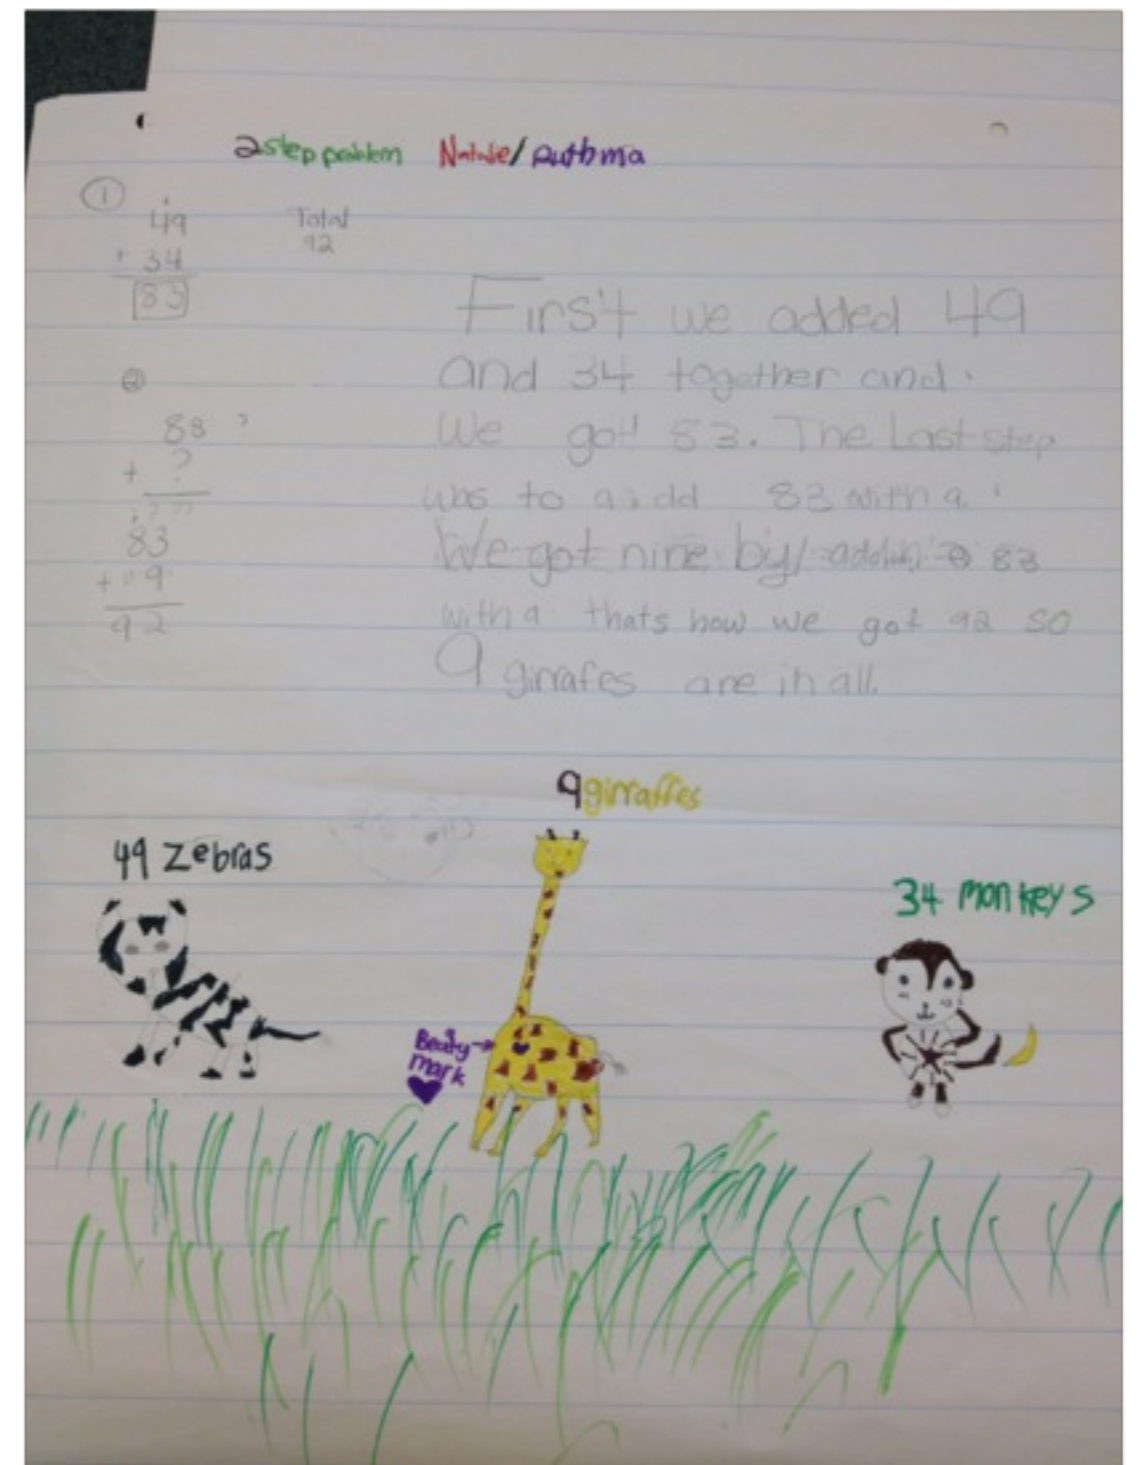 2 step problem Natalie/ Authma
①
49
+ 34
83
Total
92
②
83
+ ?
???
83
+ 9
92
First we added 49
and 34 together and
We got 83. The Last step
was to add 83 with 9.
We got nine by/ adding 83
with 9 thats how we got 92 so
9 girrafes are in all.
9 girraffes
49 zebras
34 monkeys
Beaty
mark